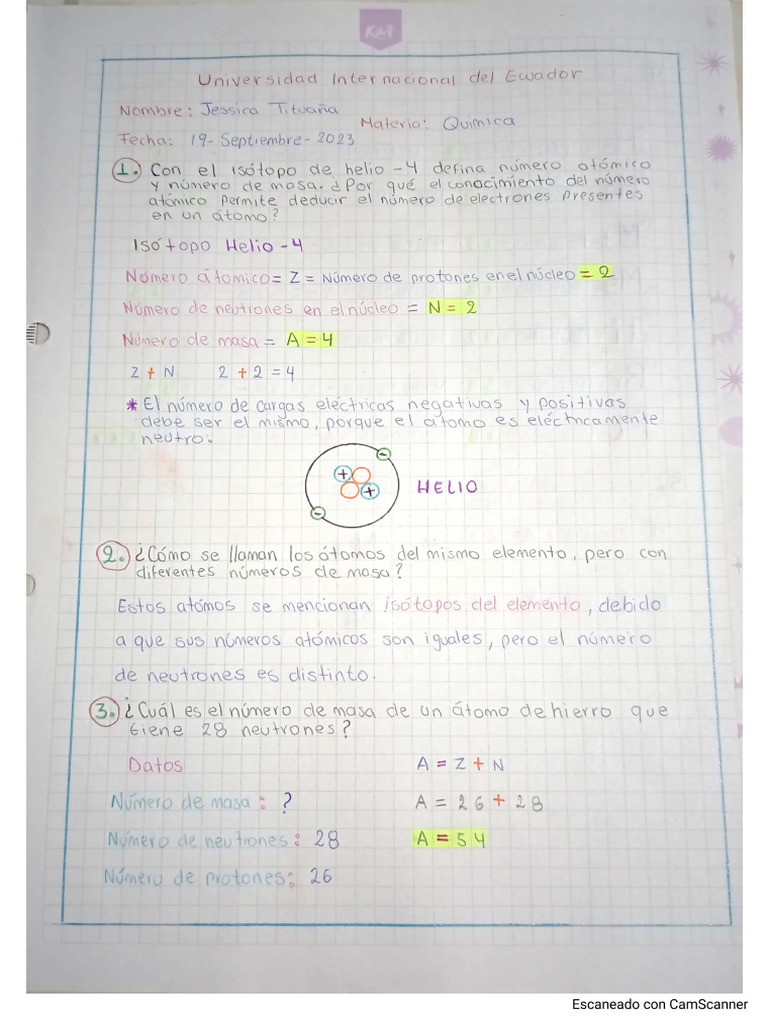 KIUT
Universidad Internacional del Ecuador
Nombre: Jessica Tituaña
Materia: Química
Fecha: 19-Septiembre-2023
1. Con el isótopo de helio -4 defina número atómico
y número de masa. ¿Por qué el conocimiento del número
atómico permite deducir el número de electrones presentes
en un átomo?
Isótopo Helio-4
Número átomico = Z = Número de protones en el núcleo = 2
Número de neutrones en el núcleo = N = 2
Número de masa = A = 4
Z + N 2 + 2 = 4
* El número de cargas eléctricas negativas y positivas
debe ser el mismo, porque el átomo es eléctricamente
neutro.
- + + -
HELIO
2. ¿Cómo se llaman los átomos del mismo elemento, pero con
diferentes números de masa?
Estos atómos se mencionan isótopos del elemento, debido
a que sus números atómicos son iguales, pero el número
de neutrones es distinto.
3. ¿Cuál es el número de masa de un átomo de hierro que
tiene 28 neutrones?
Datos A = Z + N
Número de masa: ? A = 26 + 28
Número de neutrones: 28 A = 54
Número de protones: 26
Escaneado con CamScanner